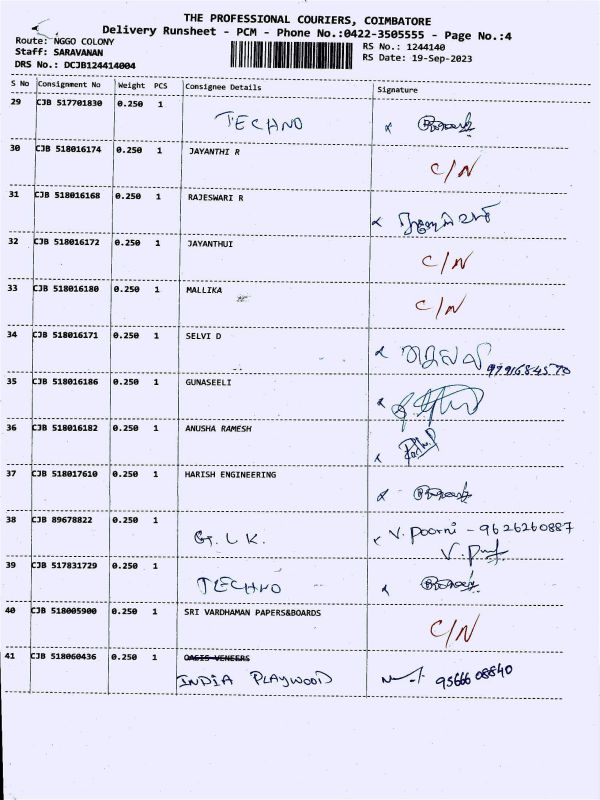 THE PROFESSIONAL COURIERS, COIMBATORE
Delivery Runsheet - PCM - Phone No.:0422-3505555 - Page No.:4
Route: NGGO COLONY
RS No.: 1244140
Staff: SARAVANAN
RS Date: 19-Sep-2023
DRS No.: DCJB124414004
S No Consignment No Weight PCS Consignee Details Signature
29 CJB 517701830 0.250 1 TECHNO x
30 CJB 518016174 0.250 1 JAYANTHI R C/N
31 CJB 518016168 0.250 1 RAJESWARI R x
32 CJB 518016172 0.250 1 JAYANTHUI C/N
33 CJB 518016180 0.250 1 MALLIKA C/N
34 CJB 518016171 0.250 1 SELVI D x
35 CJB 518016186 0.250 1 GUNASEELI x
36 CJB 518016182 0.250 1 ANUSHA RAMESH x
37 CJB 518017610 0.250 1 HARISH ENGINEERING x
38 CJB 89678822 0.250 1 G. L K. x V. Poorni - 9626260887
39 CJB 517831729 0.250 1 TECHNO x
40 CJB 518005900 0.250 1 SRI VARDHAMAN PAPERS&BOARDS C/N
41 CJB 518060436 0.250 1 OASIS VENEERS
INDIA PLAYWOOD 9566608840